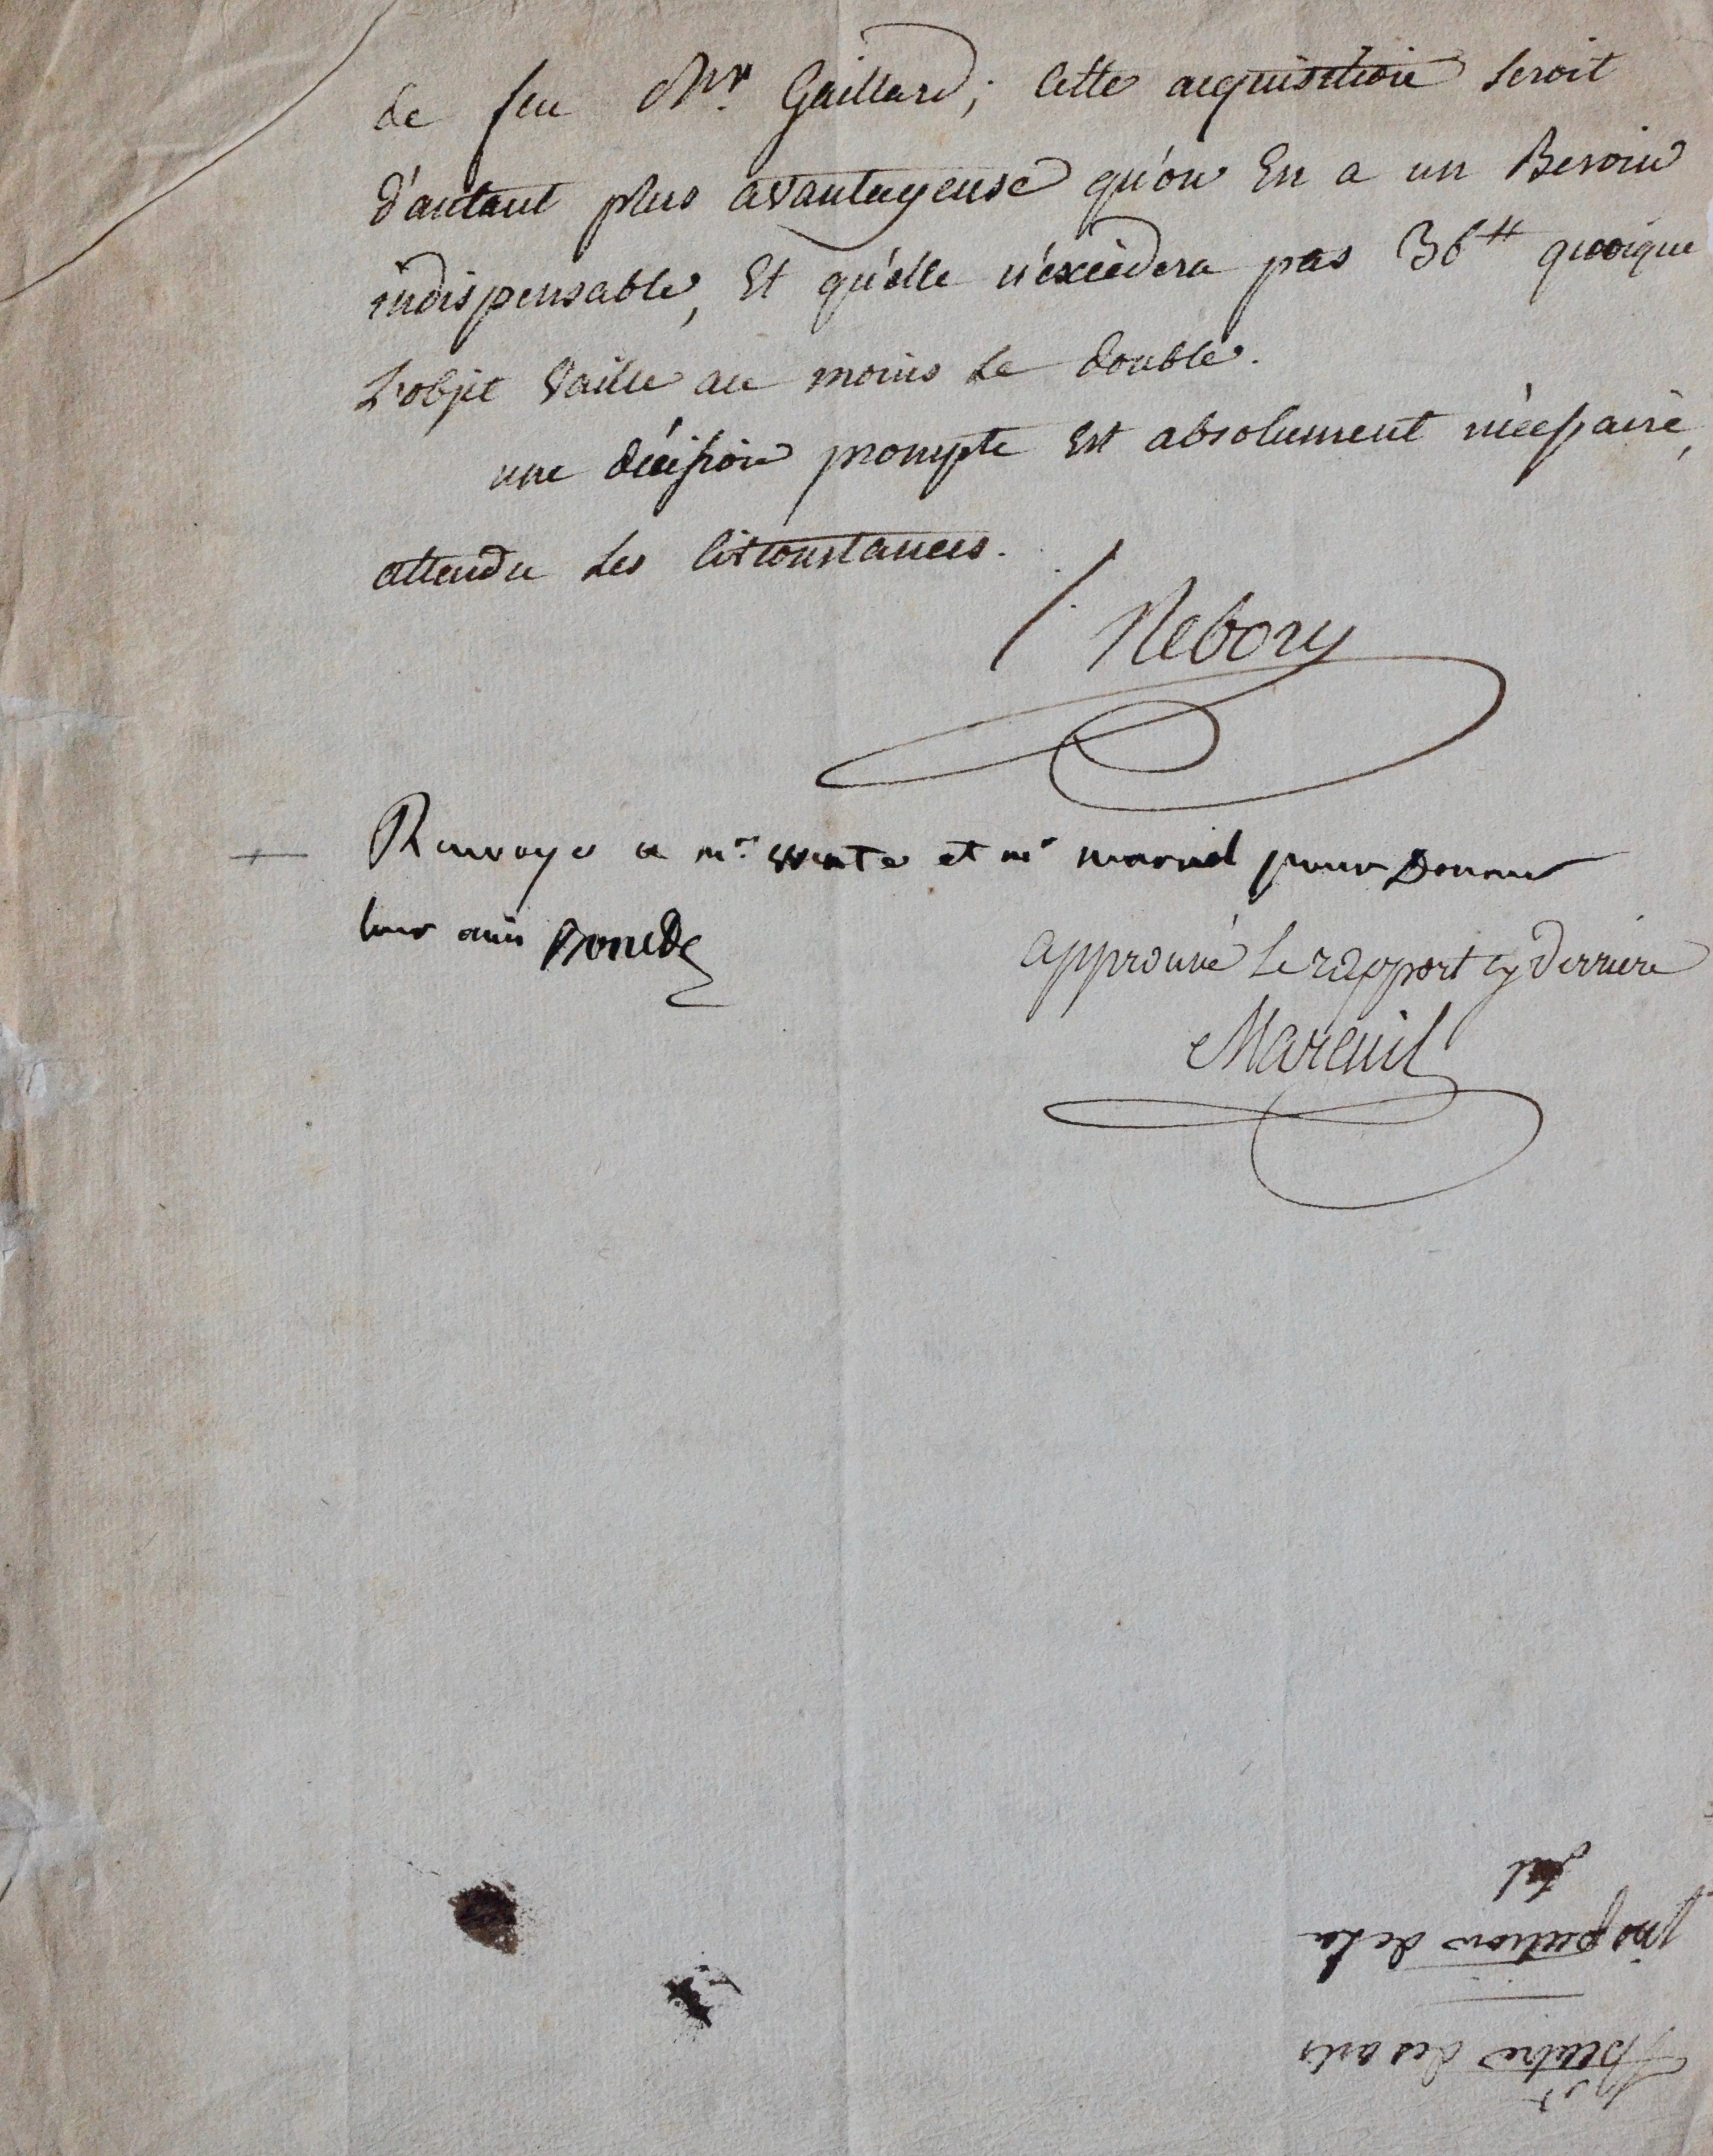 de feu Mr. Gaillard; cette acquisition seroit
d'autant plus avantageuse qu'on En a un Besoin
indispensable, Et qu'elle n'excèdera pas 36tt quoique
L'objet vaille au moins le double.
une décision prompte Est absolument nécessaire,
attendu les circonstances.
Nebory
Renvoye a mr. vente et mr mareuil pour Donner
leur avis
approuvé Le rapport cy derriere
Mareuil
Théatre des arts
inspection de la